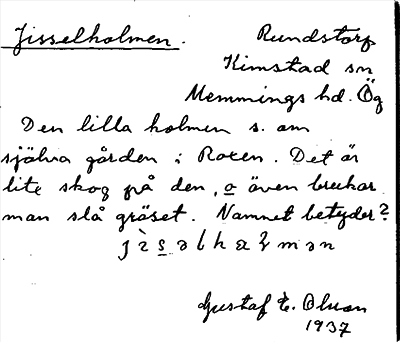 Jisselholmen.
Rundstorp
Kimstad sn
Memmings hd. Ög
Den lilla holmen s. om
själva gården i Roxen. Det är
lite skog på den, o även brukar
man slå gräset. Namnet betyder?
Gustaf E.
1937